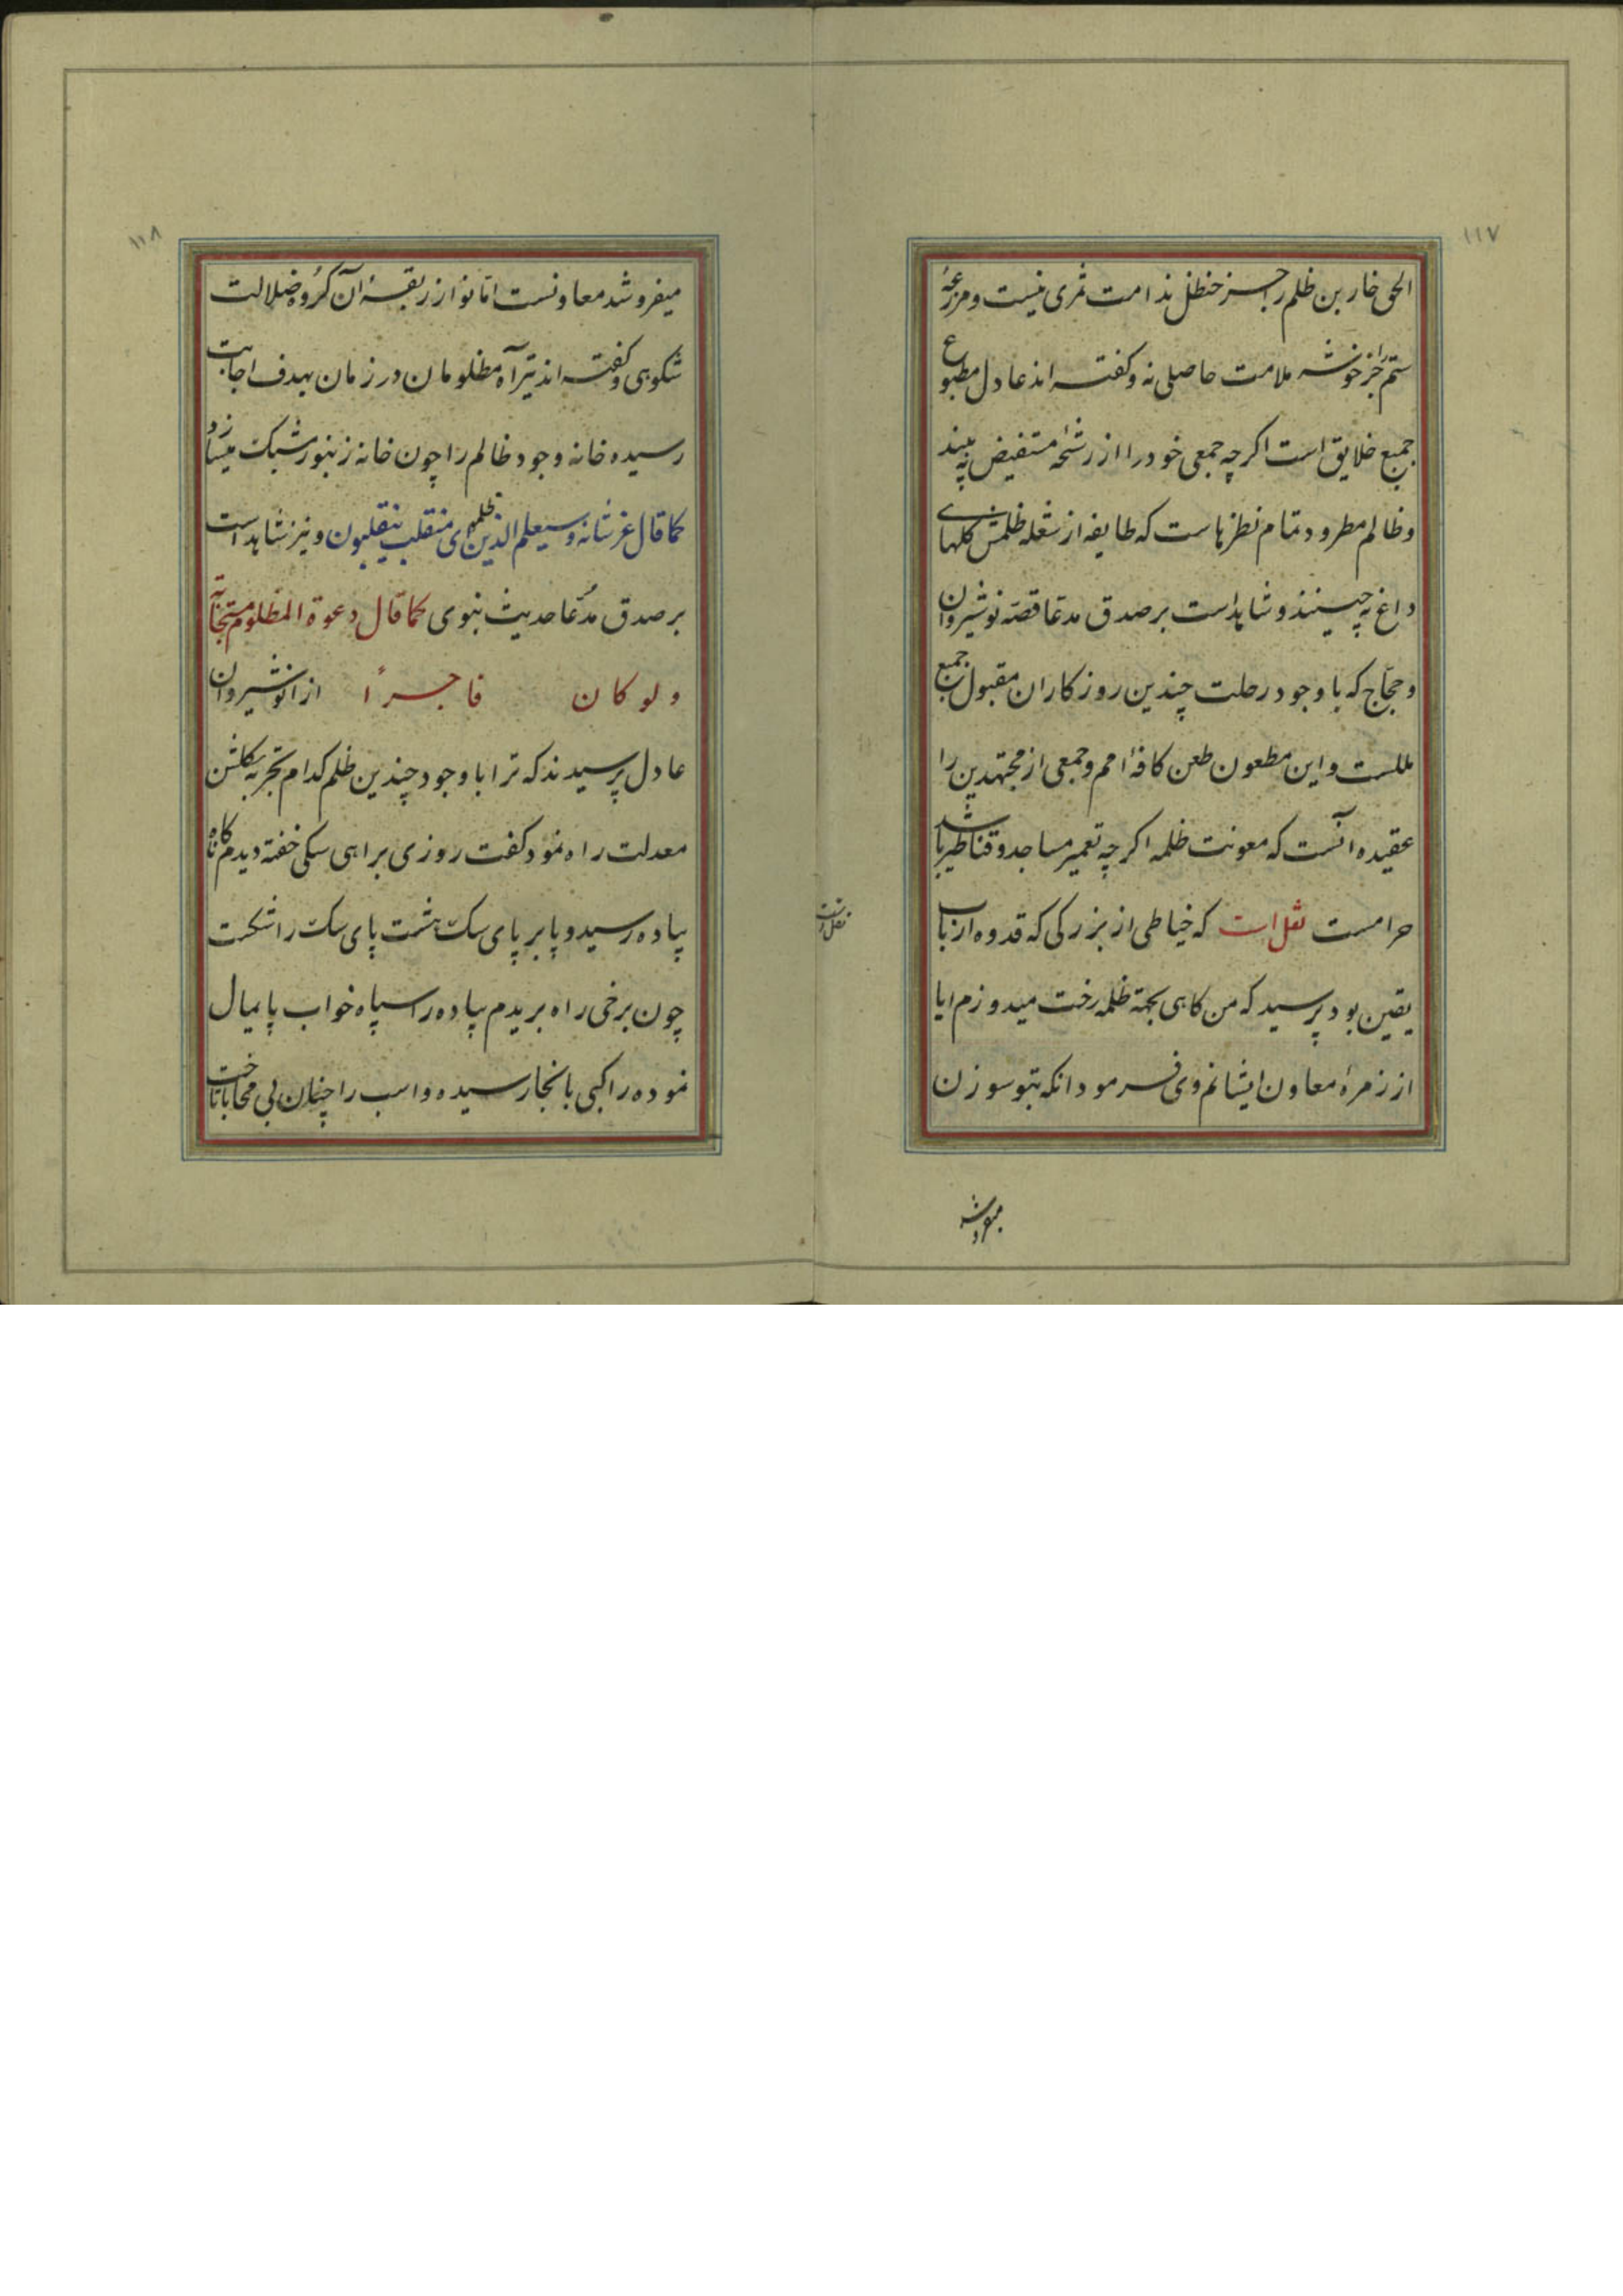 ۱۱۷
الحق خار بن ظلم را جز حنظل ندامت ثمری نیست و مزرعهٔ
ستم را جز خوشه ملامت حاصلی نه و کفته اند عادل مطبوع
جمیع خلایق است اکرچه جمعی خود را از رشحهٔ مستفیض نه بیند
و ظالم مطرود تمام نظرهاست که طایفه از شعله ظلمش کلهای
داغ نه چینند و شاهد است بر صدق مدعا قصه نوشیروان
و حجاج که با وجود رحلت چندین روزکار ان مقبول جمیع
مللست و این مطعون طعن کافهٔ امم و جمعی از مجتهدین را
عقیده انست که معونت ظلمه اکرچه تعمیر مساجد و قناطیر باشد
حرامست نقل است که خیاطی از بزرکی که قدوه ارباب
یقین بود پرسید که من کاهی بجهة ظلمه رخت میدوزم ایا
از زمرهٔ معاون ایشانم وی فرمود انکه بتو سوزن
میفروشد
نقل است
۱۱۸
میفروشد معاونست اما تو از ربقهٔ آن کروه ضلالت
شکوهی و کفته اند تیر آه مظلومان در زمان بهدف اجابت
رسیده خانه وجود ظالم را چون خانه زنبور مشبک میسازد
کما قال عز شانه و سیعلم الذین ظلموا ای منقلب ینقلبون و نیز شاهد است
بر صدق مدّعا حدیث نبوی کما قال دعوة المظلوم مستجابة
و لو کان فاجرًا از انوشیروان
عادل پرسیدند که ترا با وجود چندین ظلم کدام تجربه بکلشن
معدلت راه نمود کفت روزی براهی سکی خفته دیدم ناکاه
پیاده رسید و پا بر پای سک هشت پای سک را شکست
چون برخی راه بریدم پیاده را سپاه خواب پایمال
نموده راکبی بانجا رسیده و اسب را چنان بی محابا تاخت